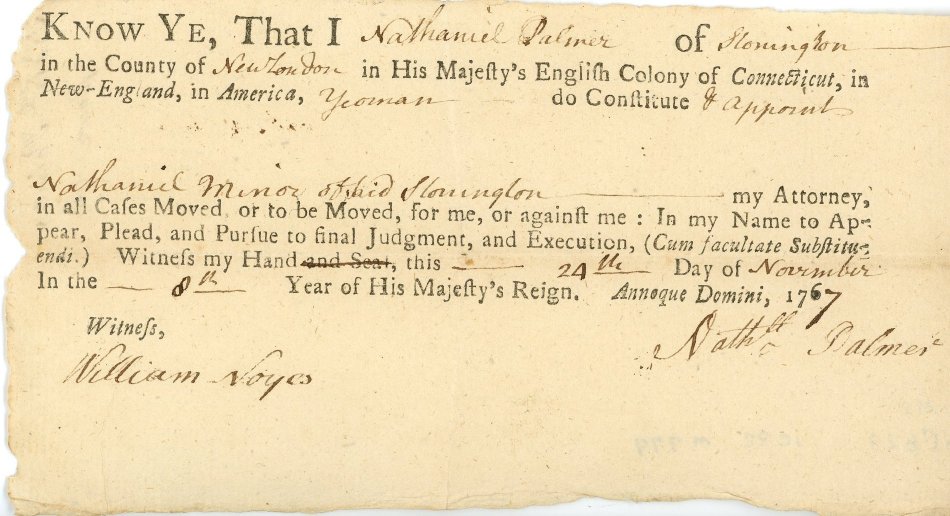 KNOW YE, That I Nathaniel Palmer of Stonington
in the County of New London in His Majeſty's Engliſh Colony of Connecticut, in
New-England, in America, Yeoman do Conſtitute & Appoint
Nathaniel Minor of said Stonington my Attorney,
in all Caſes Moved, or to be Moved, for me, or againſt me : In my Name to Ap-
pear, Plead, and Purſue to final Judgment, and Execution, (Cum facultate Subſtitu-
endi.) Witneſs my Hand and Seal, this 24th Day of November
In the 8th Year of His Majeſty's Reign. Annoque Domini, 1767
Witneſs, Nathll Palmer
William Noyes